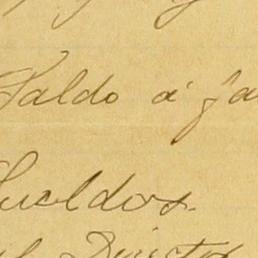 Saldo á fa
Sueldos.
al Director